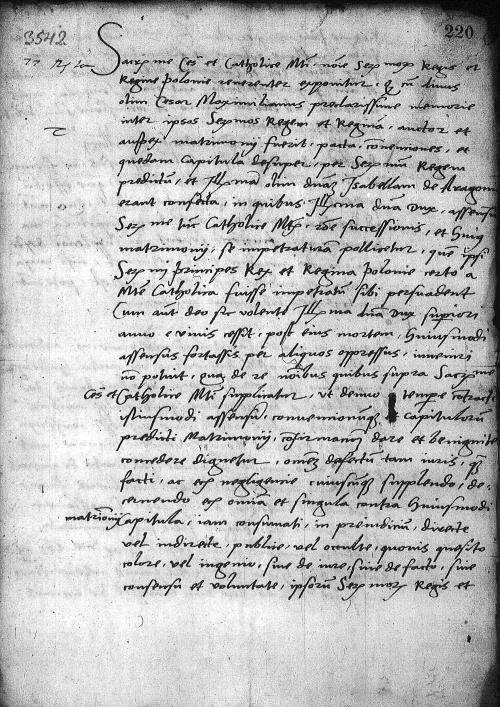 3542
220
Sacre me Ces et Catholice Mti noie Sermor Regis et
Regine Polonie reverenter exponitur, q cu divus
olim Cesar Maximilianus preclarissime memorie
inter ipsos Sermos Regem et Regina, auctor et
auspex matrimonij fuerit, pacta, conventiones, et
quedam Capitula desuper, per Sermu Regem
predictu, et Illma olim duam Isabellam de Aragon
erant confecta, in quibus Illma dua Dux, assensu
Ser me tuc Catholice Mtis, roe successionis, et huius
matrimonij, se impetratura polliceretur, que ipsi
Sermi Principes Rex et Regina Polonie certo a
Mte Catholica fuisse impetratu sibi persuadent
Cum aut deo sic volente Illma dua Dux superiori
anno e vivis cessit, post eius mortem, huiusmodi
assensus fortassis per aliquos oppressus, inveniri
no potuit, qua de re noibus quibus supra Sacre me
Ces et Catholice Mti supplicatur, ut denuo tempe cotracti
istiusmodi assensu, conventionuq capitulorum
predicti Matrimonij, cofirmatione dare et benignite
concedere dignetur, omes defectu tam iuris, q
facti, ac ex negligentie cuiusq supplendo, de
cernendo ex omia et singula contra huiusmodi
matrimonij Capitula, iam consumati, in preiudiciu, directe
vel indirecte, publice, vel occulte, quovis quesito
colore, vel ingenio, sive de iure, sive de facto, sine
consensu et voluntate, ipsoru Ser mor Regis et